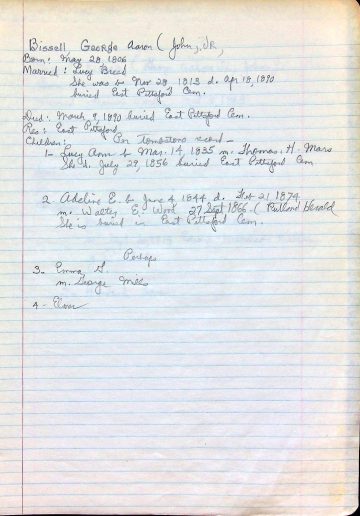 Bissell George Aaron (John, Jr,
Born: May 28, 1806
Married: Lucy Breed
She was b Nov 28 1813 d. Apr 18, 1890
buried East Pittsford Cem.
Died: March 9, 1890 buried East Pittsford Cem.
Res: East Pittsford,
Children: Per tombstone record -
1- Lucy Ann b Mar. 14, 1835 m. Thomas. H. Mars
She d. July 29, 1856 buried East Pittsford Cem
2 Adeline E. b June 4 1844 d. Feb 21 1874
m. Walter E. Word 27 Sept 1866 (Rutland Herald
She is buried in East Pittsford Cem.
Perhaps
3- Emma S.
m. George Mills
4-